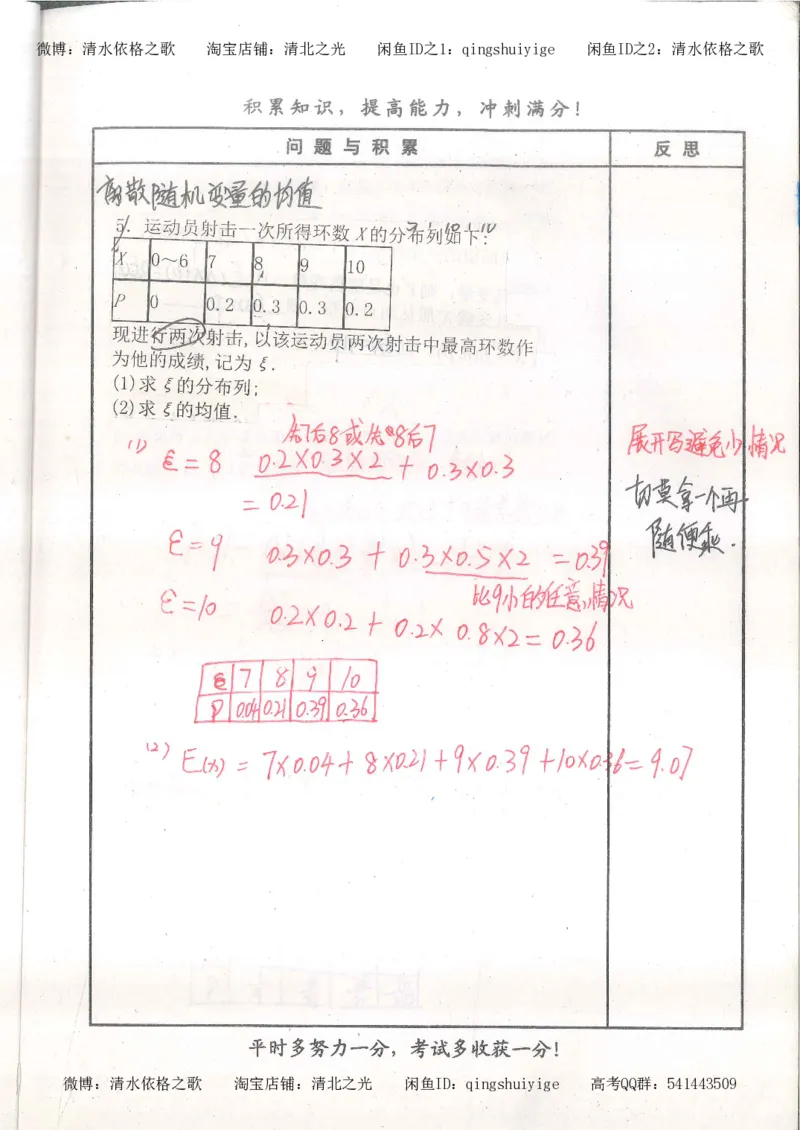 微博：清水依格之歌 淘宝店铺：清北之光 闲鱼ID之1：qingshuiyige 闲鱼ID之2：清水依格之歌
积累知识，提高能力，冲刺满分！
问题与积累 反思
离散随机变量的均值
5. 运动员射击一次所得环数X的分布列如下：
X 0～6 7 8 9 10
P 0 0.2 0.3 0.3 0.2
现进行两次射击,以该运动员两次射击中最高环数作
为他的成绩,记为ξ.
(1)求ξ的分布列;
(2)求ξ的均值.
先7后8或先8后7
(1) ξ=8 0.2×0.3×2+0.3×0.3
=0.21
ξ=9 0.3×0.3+0.3×0.5×2=0.39
比9小的任意情况
ξ=10 0.2×0.2+0.2×0.8×2=0.36
ξ 7 8 9 10
P 0.04 0.21 0.39 0.36
(2) E(x)=7×0.04+8×0.21+9×0.39+10×0.36=9.07
展开写避免少情况
切莫拿一个再
随便乘.
平时多努力一分，考试多收获一分！
微博：清水依格之歌 淘宝店铺：清北之光 闲鱼ID：qingshuiyige 高考QQ群：541443509